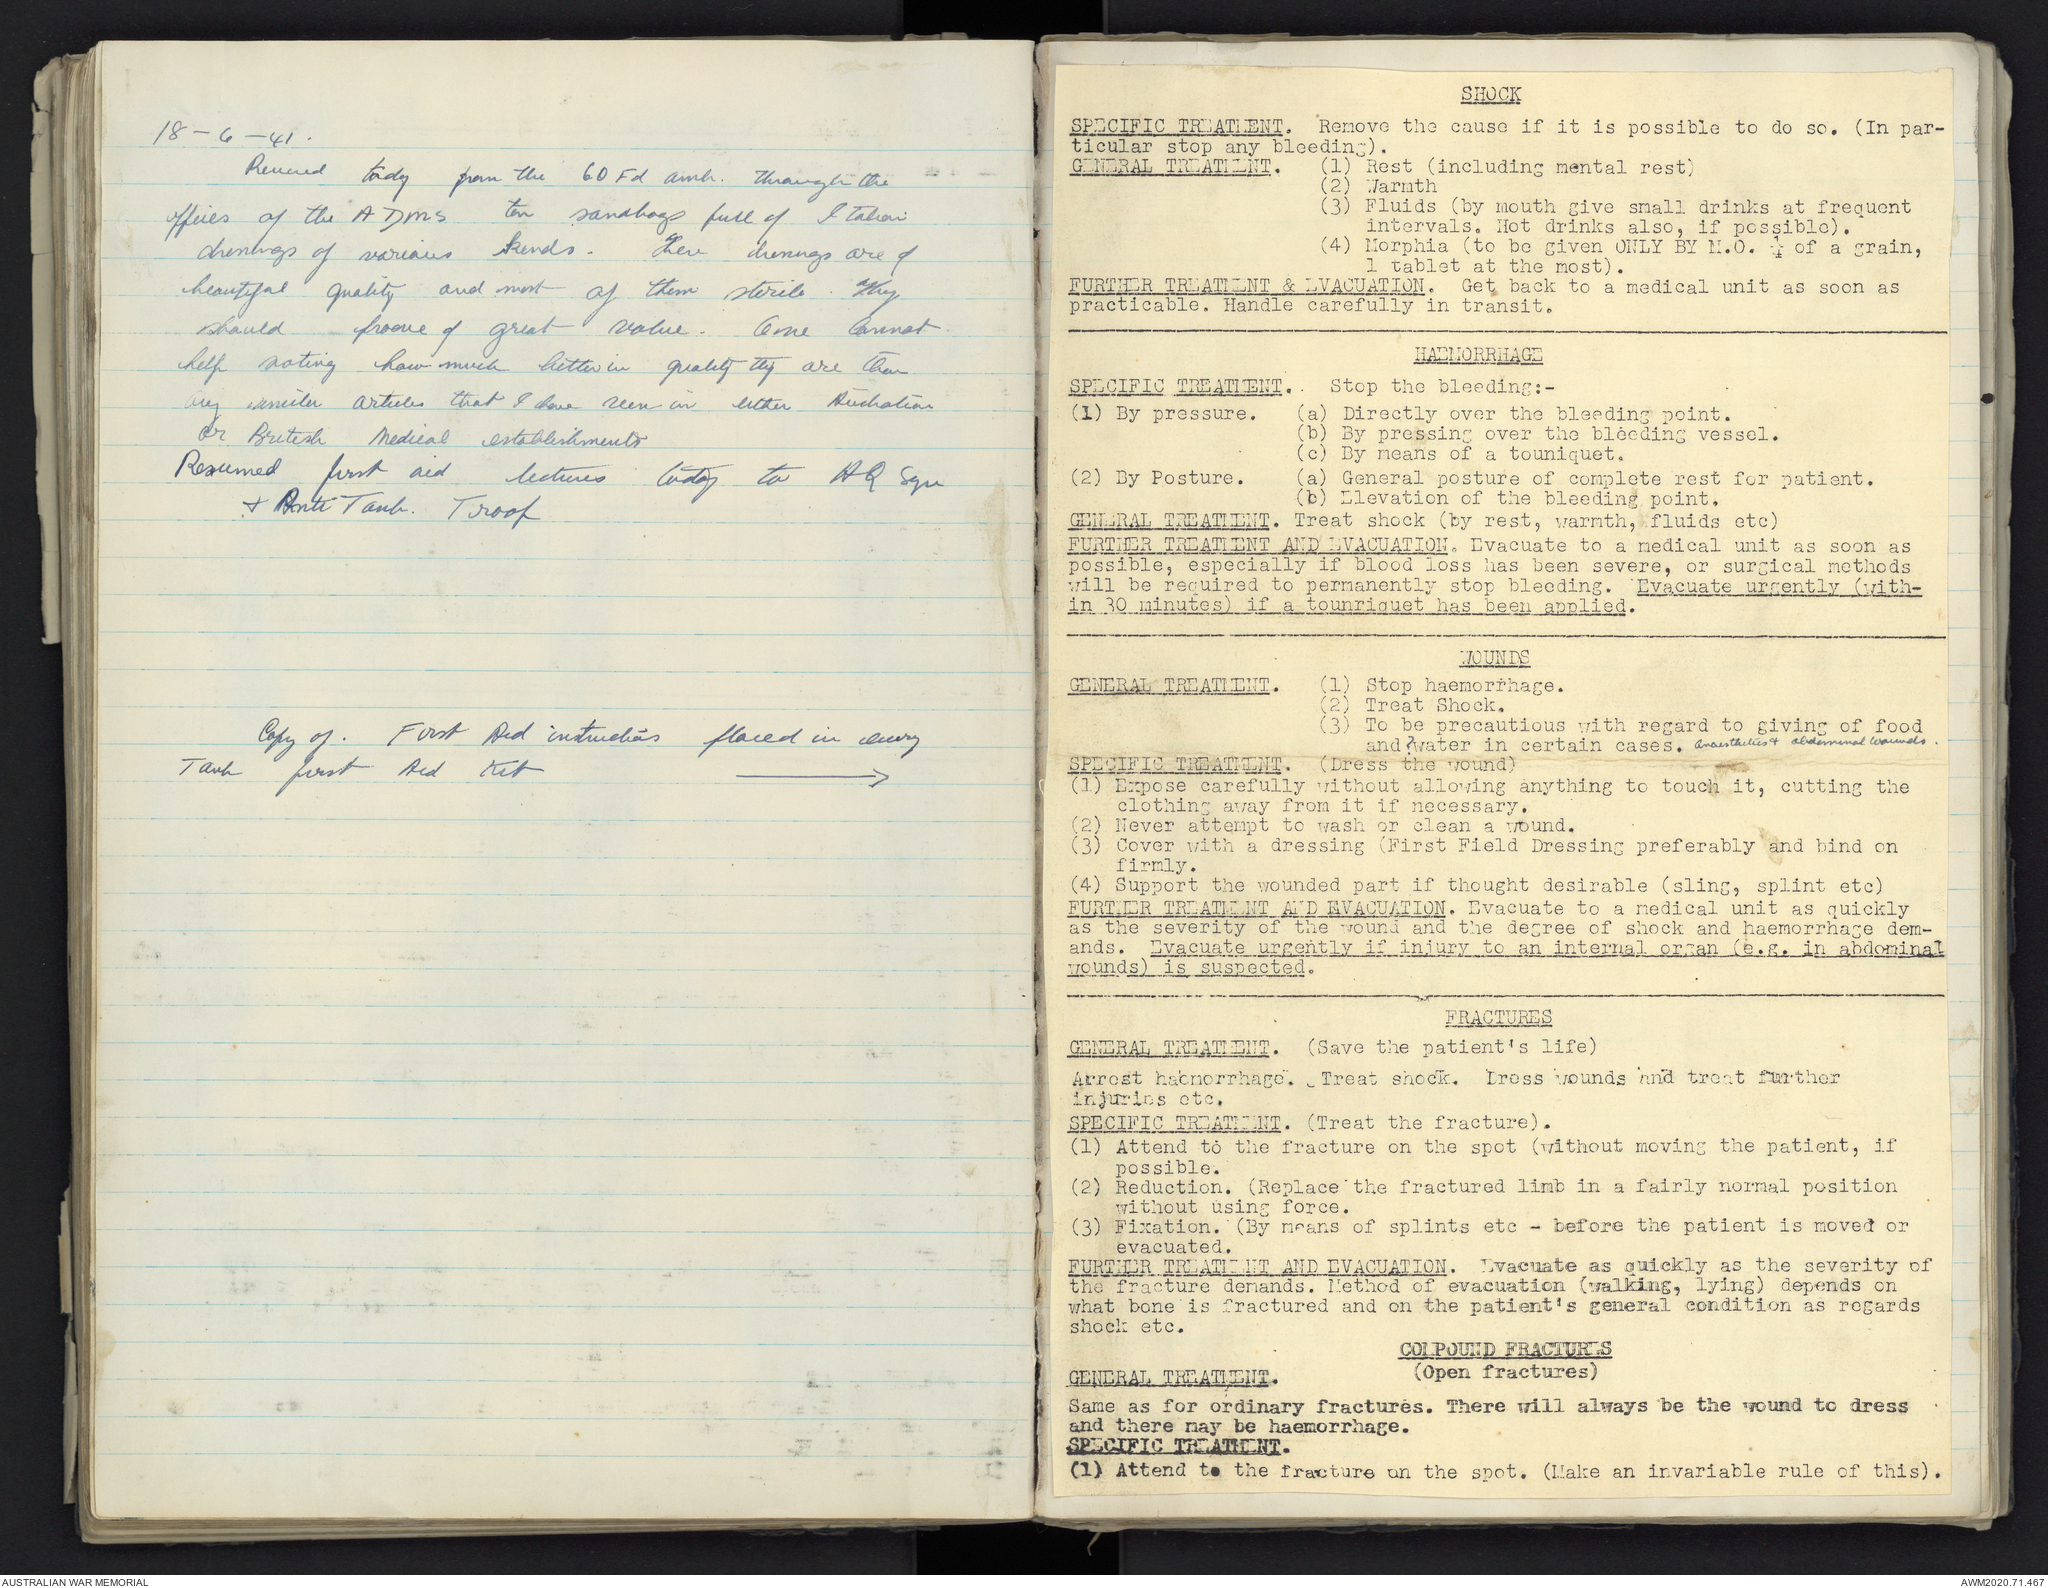 18-6-41.
Received today from the 60 Fd amb. through the
offices of the ADMS ten sandbags full of Italian
dressings of various kinds. These dressings are of
beautiful quality and most of them sterile. They
should proove of great value. One cannot
help noting how much better in quality they are than
any similar articles that I have seen in either Australian
or British Medical establishments
Resumed first aid lectures today to HQ Sqn
+ Anti Tank. Troop
Copy of. First Aid instructions placed in every
Tank first Aid Kit
SHOCK
SPECIFIC TREATMENT. Remove the cause if it is possible to do so. (In par-
ticular stop any bleeding).
GENERAL TREATMENT. (1) Rest (including mental rest)
(2) Warmth
(3) Fluids (by mouth give small drinks at frequent
intervals. Hot drinks also, if possible).
(4) Morphia (to be given ONLY BY M.O. ¼ of a grain,
1 tablet at the most).
FURTHER TREATMENT & EVACUATION. Get back to a medical unit as soon as
practicable. Handle carefully in transit.
HAEMORRHAGE
SPECIFIC TREATMENT. Stop the bleeding:-
(1) By pressure. (a) Directly over the bleeding point.
(b) By pressing over the bleeding vessel.
(c) By means of a touniquet.
(2) By Posture. (a) General posture of complete rest for patient.
(b) Elevation of the bleeding point.
GENERAL TREATMENT. Treat shock (by rest, warmth, fluids etc)
FURTHER TREATMENT AND EVACUATION. Evacuate to a medical unit as soon as
possible, especially if blood loss has been severe, or surgical methods
will be required to permanently stop bleeding. Evacuate urgently (with-
in 30 minutes) if a tounriquet has been applied.
WOUNDS
GENERAL TREATMENT. (1) Stop haemorrhage.
(2) Treat Shock.
(3) To be precautious with regard to giving of food
and ? water in certain cases. anaesthetics + abdominal wounds.
SPECIFIC TREATMENT. (Dress the wound)
(1) Expose carefully without allowing anything to touch it, cutting the
clothing away from it if necessary.
(2) Never attempt to wash or clean a wound.
(3) Cover with a dressing (First Field Dressing preferably and bind on
firmly.
(4) Support the wounded part if thought desirable (sling, splint etc)
FURTHER TREATMENT AND EVACUATION. Evacuate to a medical unit as quickly
as the severity of the wound and the degree of shock and haemorrhage dem-
ands. Evacuate urgently if injury to an internal organ (e.g. in abdominal
wounds) is suspected.
FRACTURES
GENERAL TREATMENT. (Save the patient's life)
Arrest haemorrhage. Treat shock. Dress wounds and treat further
injuries etc.
SPECIFIC TREATMENT. (Treat the fracture).
(1) Attend to the fracture on the spot (without moving the patient, if
possible.
(2) Reduction. (Replace the fractured limb in a fairly normal position
without using force.
(3) Fixation. (By means of splints etc - before the patient is moved or
evacuated.
FURTHER TREATMENT AND EVACUATION. Evacuate as quickly as the severity of
the fracture demands. Method of evacuation (walking, lying) depends on
what bone is fractured and on the patient's general condition as regards
shock etc.
COMPOUND FRACTURES
(Open fractures)
GENERAL TREATMENT.
Same as for ordinary fractures. There will always be the wound to dress
and there may be haemorrhage.
SPECIFIC TREATMENT.
(1) Attend to the fracture on the spot. (Make an invariable rule of this).
AUSTRALIAN WAR MEMORIAL
AWM2020.71.467